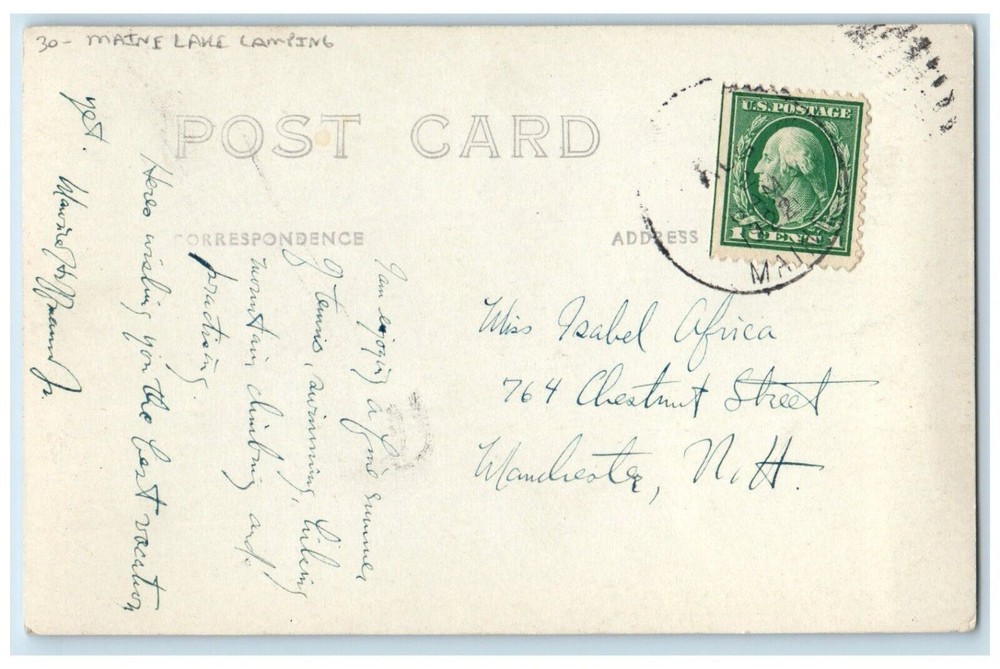 30- MAINE LAKE CAMPING
POST CARD
CORRESPONDENCE
ADDRESS
U.S. POSTAGE
1 CENT 1
I am enjoying a fine summer
of tennis, swimming, hiking
mountain climbing and
practising.
Heres wishing you the best vacation
yet.
Hoffmann Jr.
Miss Isabel Africa
764 Chestnut Street
Manchester, N.H.